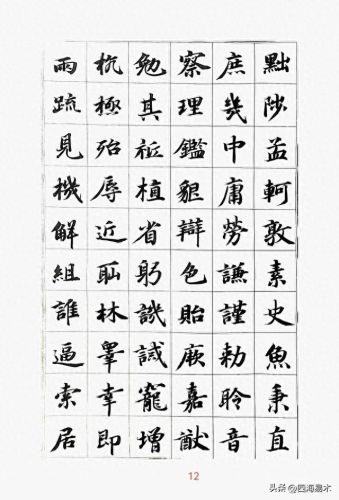 黜陟孟軻敦素史魚秉直
庶幾中庸勞謙謹勑聆音
察理鑑貌辯色貽厥嘉猷
勉其祗植省躬譏誡寵增
抗極殆辱近恥林皋幸即
兩疏見機解組誰逼索居
12
头条 @四海易木